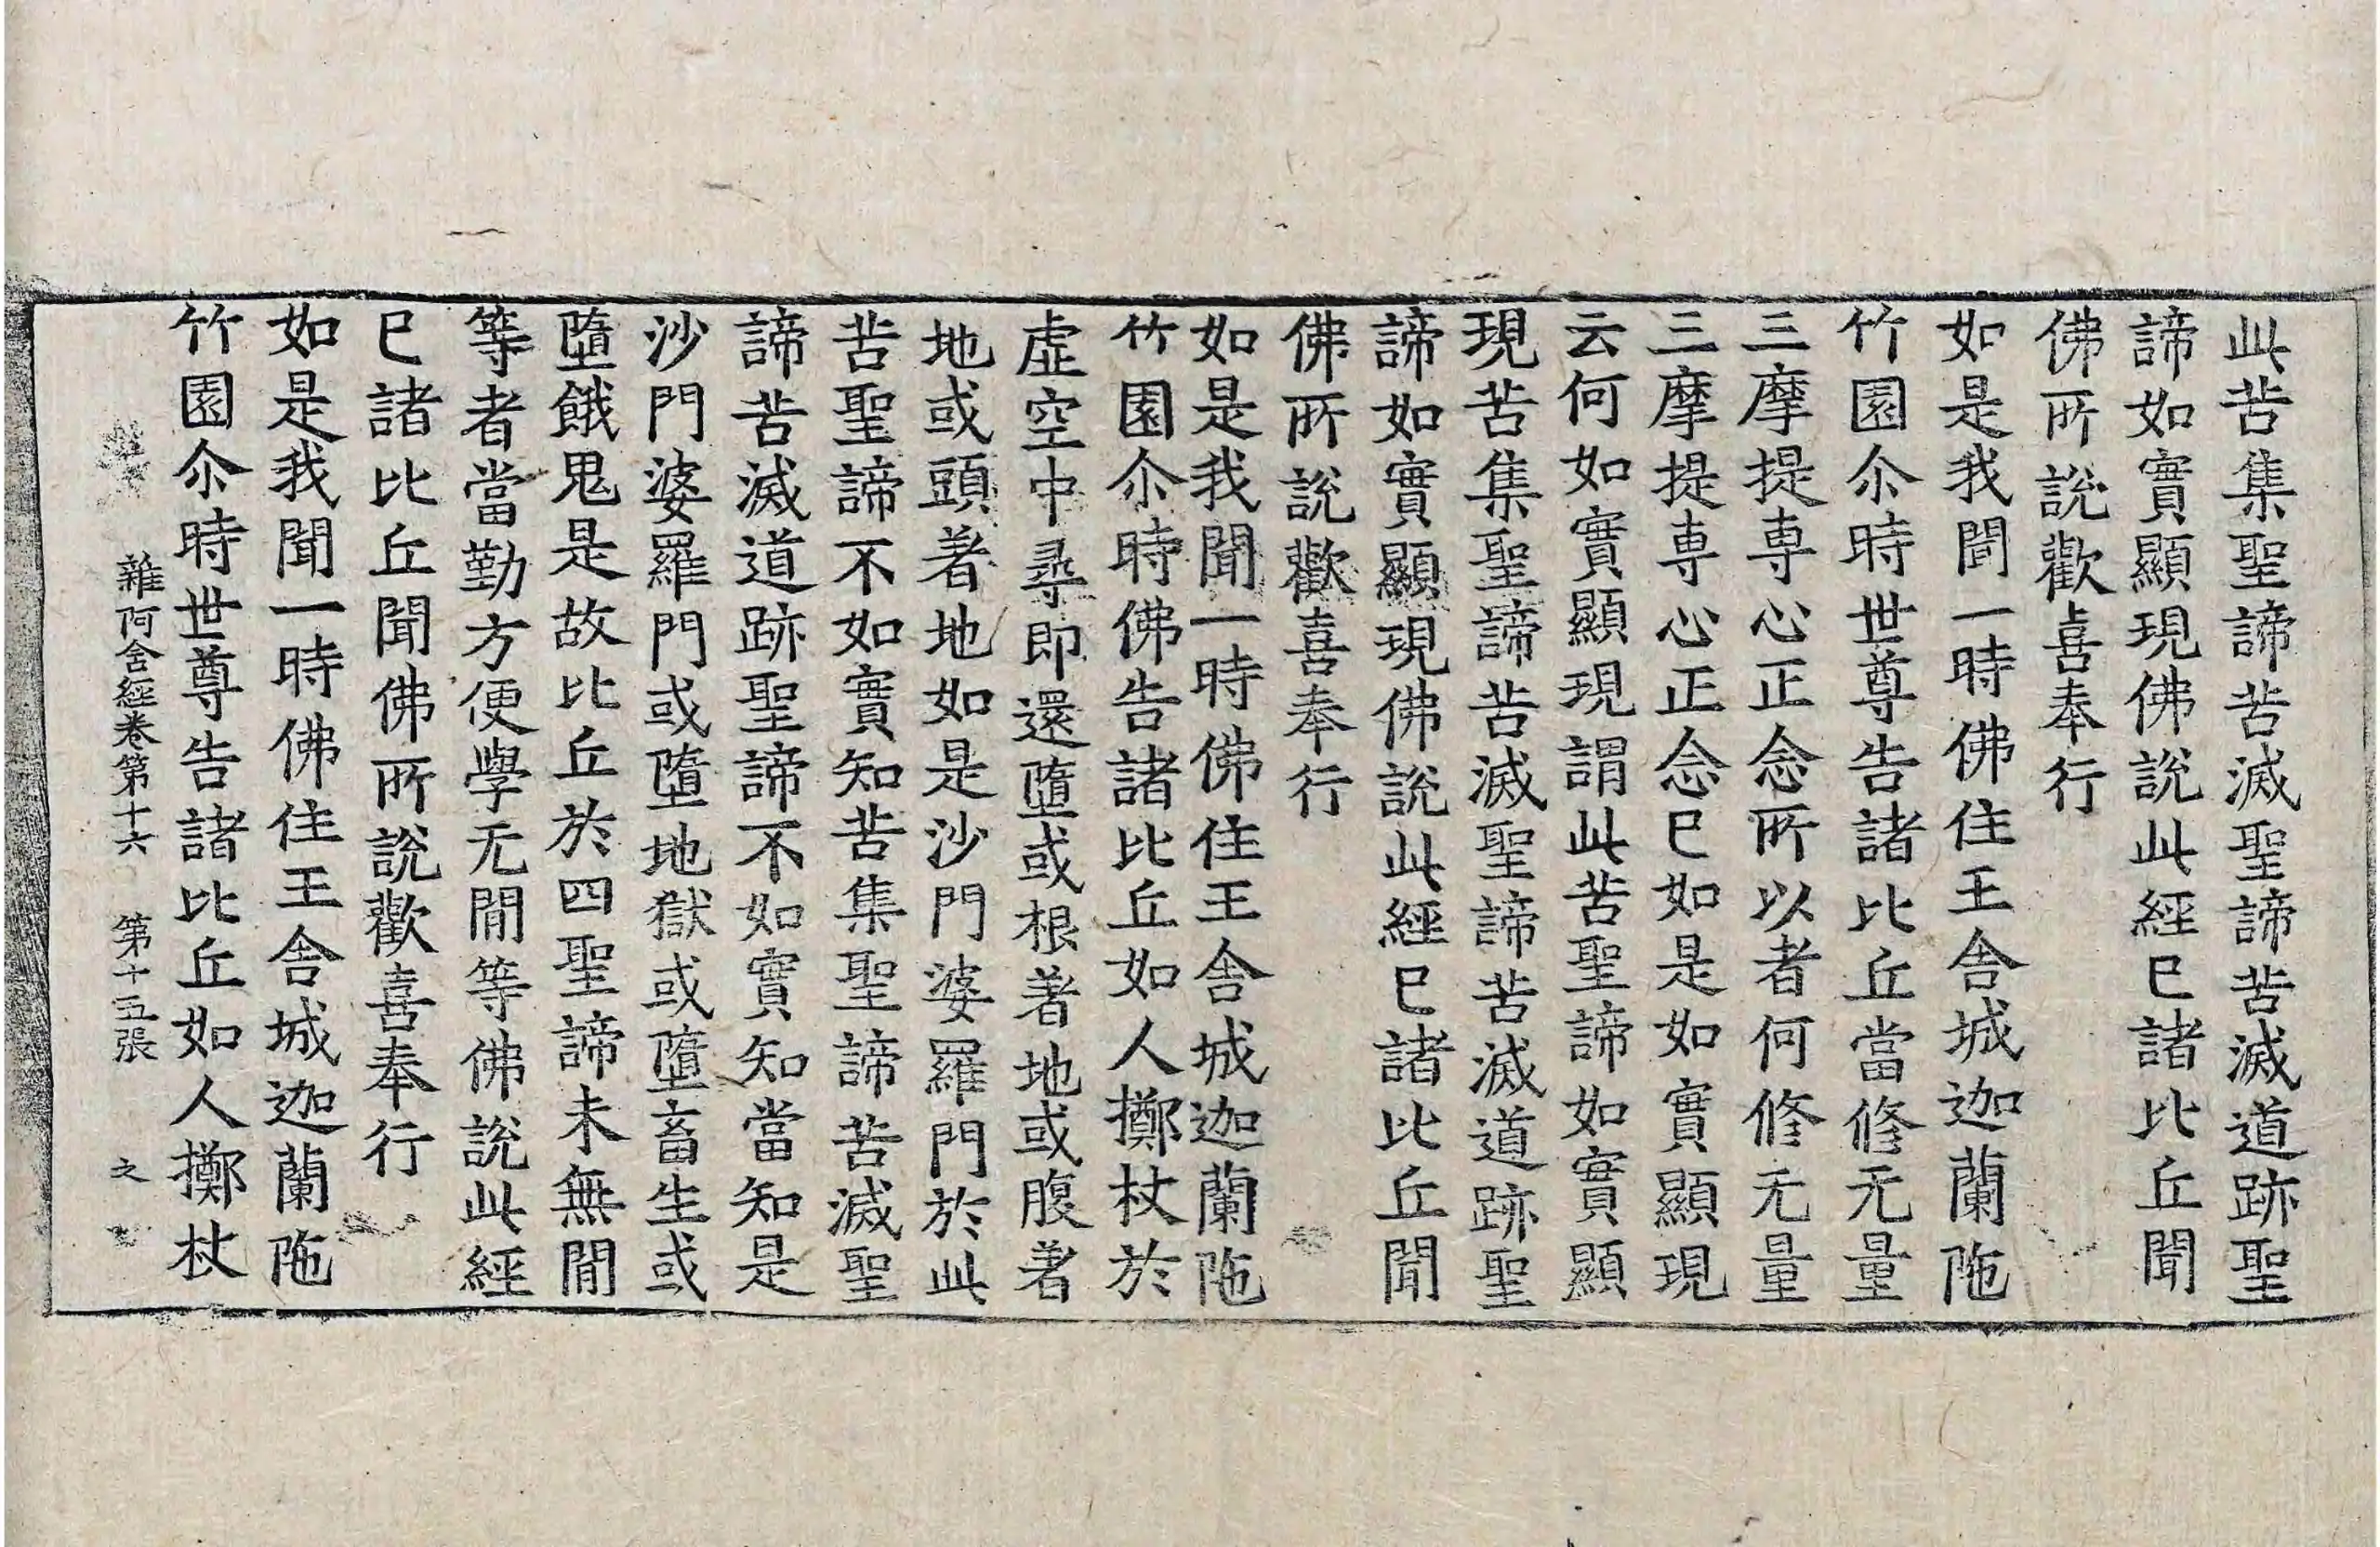 此苦集聖諦苦滅聖諦苦滅道跡聖
諦如實顯現佛說此經已諸比丘聞
佛所說歡喜奉行
如是我聞一時佛住王舍城迦蘭陁
竹園尒時世尊告諸比丘當修无量
三摩提專心正念所以者何修无量
三摩提專心正念已如是如實顯現
云何如實顯現謂此苦聖諦如實顯
現苦集聖諦苦滅聖諦苦滅道跡聖
諦如實顯現佛說此經已諸比丘聞
佛所說歡喜奉行
如是我聞一時佛住王舍城迦蘭陁
竹園尒時佛告諸比丘如人擲杖於
虛空中尋即還墮或根著地或腹著
地或頭著地如是沙門婆羅門於此
苦聖諦不如實知苦集聖諦苦滅聖
諦苦滅道跡聖諦不如實知當知是
沙門婆羅門或墮地獄或墮畜生或
墮餓鬼是故比丘於四聖諦未無閒
等者當勤方便學无閒等佛說此經
已諸比丘聞佛所說歡喜奉行
如是我聞一時佛住王舍城迦蘭陁
雜阿含經卷第十六 第十五張 之
竹園尒時世尊告諸比丘如人擲杖